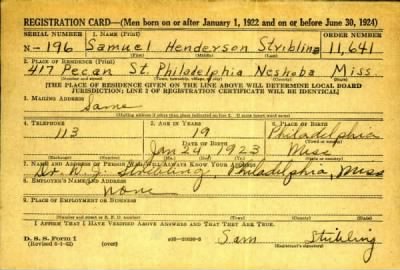 REGISTRATION CARD—(Men born on or after January 1, 1922 and on or before June 30, 1924)
SERIAL NUMBER 1. NAME (Print) ORDER NUMBER
N-196 Samuel Henderson Stribling 11,641
(First) (Middle) (Last)
2. PLACE OF RESIDENCE (Print)
417 Pecan St. Philadelphia Neshoba Miss
(Number and street) (Town, township, village, or city) (County) (State)
[THE PLACE OF RESIDENCE GIVEN ON THE LINE ABOVE WILL DETERMINE LOCAL BOARD
JURISDICTION; LINE 2 OF REGISTRATION CERTIFICATE WILL BE IDENTICAL]
3. MAILING ADDRESS
Same
(Mailing address if other than place indicated on line 2. If same insert word same)
4. TELEPHONE 5. AGE IN YEARS 6. PLACE OF BIRTH
113 19 Philadelphia
DATE OF BIRTH (Town or county)
Jan 24 1923 Miss
(Exchange) (Number) (Mo.) (Day) (Yr.) (State or country)
7. NAME AND ADDRESS OF PERSON WHO WILL ALWAYS KNOW YOUR ADDRESS
Dr. W. J. Stribling Philadelphia, Miss
8. EMPLOYER'S NAME AND ADDRESS
None
9. PLACE OF EMPLOYMENT OR BUSINESS
(Number and street or R. F. D. number) (Town) (County) (State)
I AFFIRM THAT I HAVE VERIFIED ABOVE ANSWERS AND THAT THEY ARE TRUE.
D. S. S. Form 1
Sam Stribling
(Registrant's signature)